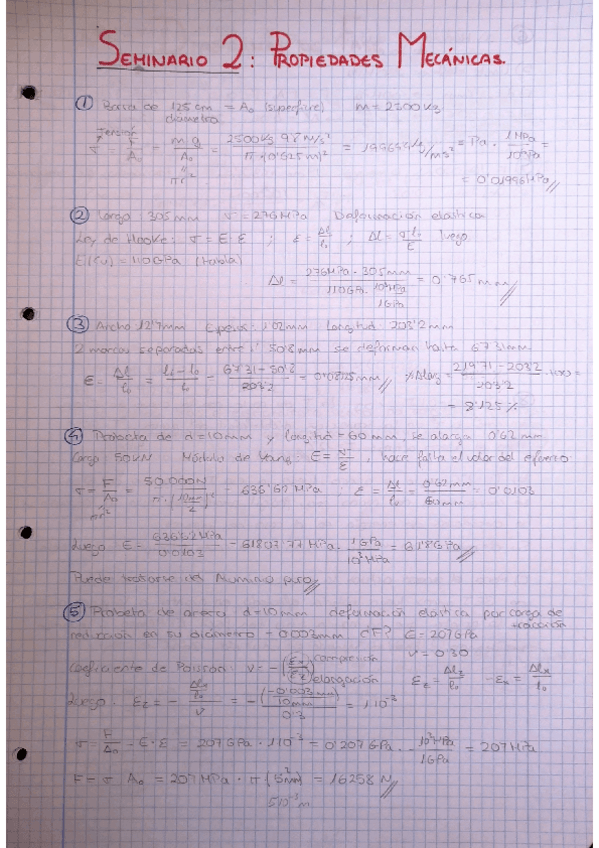 SEMINARIO 2: PROPIEDADES MECÁNICAS.
① Barra de 125cm = A₀ (superficie) m = 2500kg
diámetro
Tensión
σ = F/A₀ = m·g/A₀ = 2500kg · 9'8 N/s²/π·(0'625m)² = kg/ms² = Pa · 1MPa/10⁶Pa =
πr²
= 0'01996MPa
② Largo 305mm σ = 276MPa Deformación elástica
Ley de Hooke: σ = E·ε ; ε = Δl/l₀ ; Δl = σ·l₀/E luego
E(Cu) = 110GPa (tabla)
Δl = 276MPa · 305mm/110GPa · 10³MPa/1GPa = 0'765mm
③ Ancho 12'7mm Espesor 1,02mm Longitud 203'2mm
2 marcas separadas entre 50'8mm se deforman hasta 67'31mm
ε = Δl/l₀ = l₁-l₀/l₀ = 67'31-50'8/203'2 = 0'08125mm % Alarg = 219'71-203'2/203'2 · 100 =
= 8'125%
④ Probeta de d = 10mm y longitud = 60mm, se alarga 0'62mm
Carga 50kN Módulo de Young: E = σ/ε, hace falta el valor del esfuerzo
σ = F/A₀ = 50.000N/π·(10mm/2)² = 636'62MPa ; ε = Δl/l₀ = 0'62mm/60mm = 0'0103
πr²
Luego E = 636'62MPa/0'0103 = 61807'77MPa · 1GPa/10³MPa = 61'8GPa
Puede tratarse del Aluminio puro
⑤ Probeta de acero d = 10mm deformación elástica por carga de
tracción
reducción en su diámetro = 0'003mm ¿F? E = 207GPa
ν = 0'30
Coeficiente de Poisson: ν = -(εx/εz) compresión
elongación εz = Δlz/l₀ -εx = Δlx/l₀
Luego: εz = -Δlx/l₀/ν = -(-0'003mm/10mm)/0'3 = 1·10⁻³
σ = F/A₀ = E·ε = 207GPa · 1·10⁻³ = 0'207GPa · 10³MPa/1GPa = 207MPa
F = σ·A₀ = 207MPa · π·(5mm)² = 16258N
5·10⁻³m